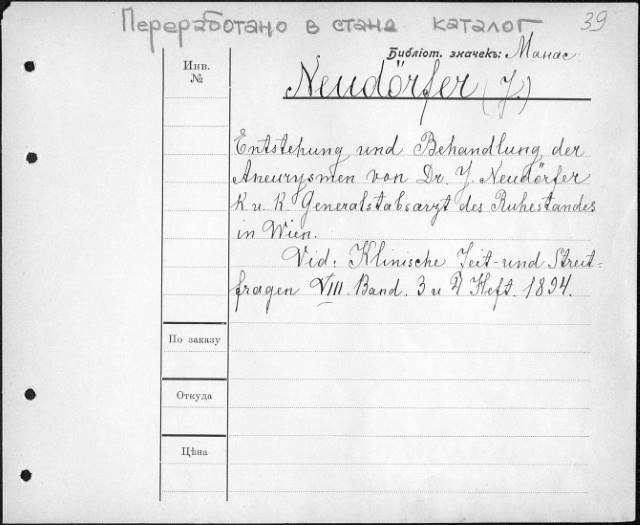 Переработано в станд каталог
39
Библіот. значекъ: Манас
Инв.
№
Neudörfer (J.)
Entstehung und Behandlung der
Aneurysmen von Dr. J. Neudörfer
K. u. K. Generalstabsarzt des Ruhestandes
in Wien.
Vid: Klinische Zeit- und Streit-
fragen VIII. Band. 3 u 4 Heft. 1894.
По заказу
Откуда
Цѣна